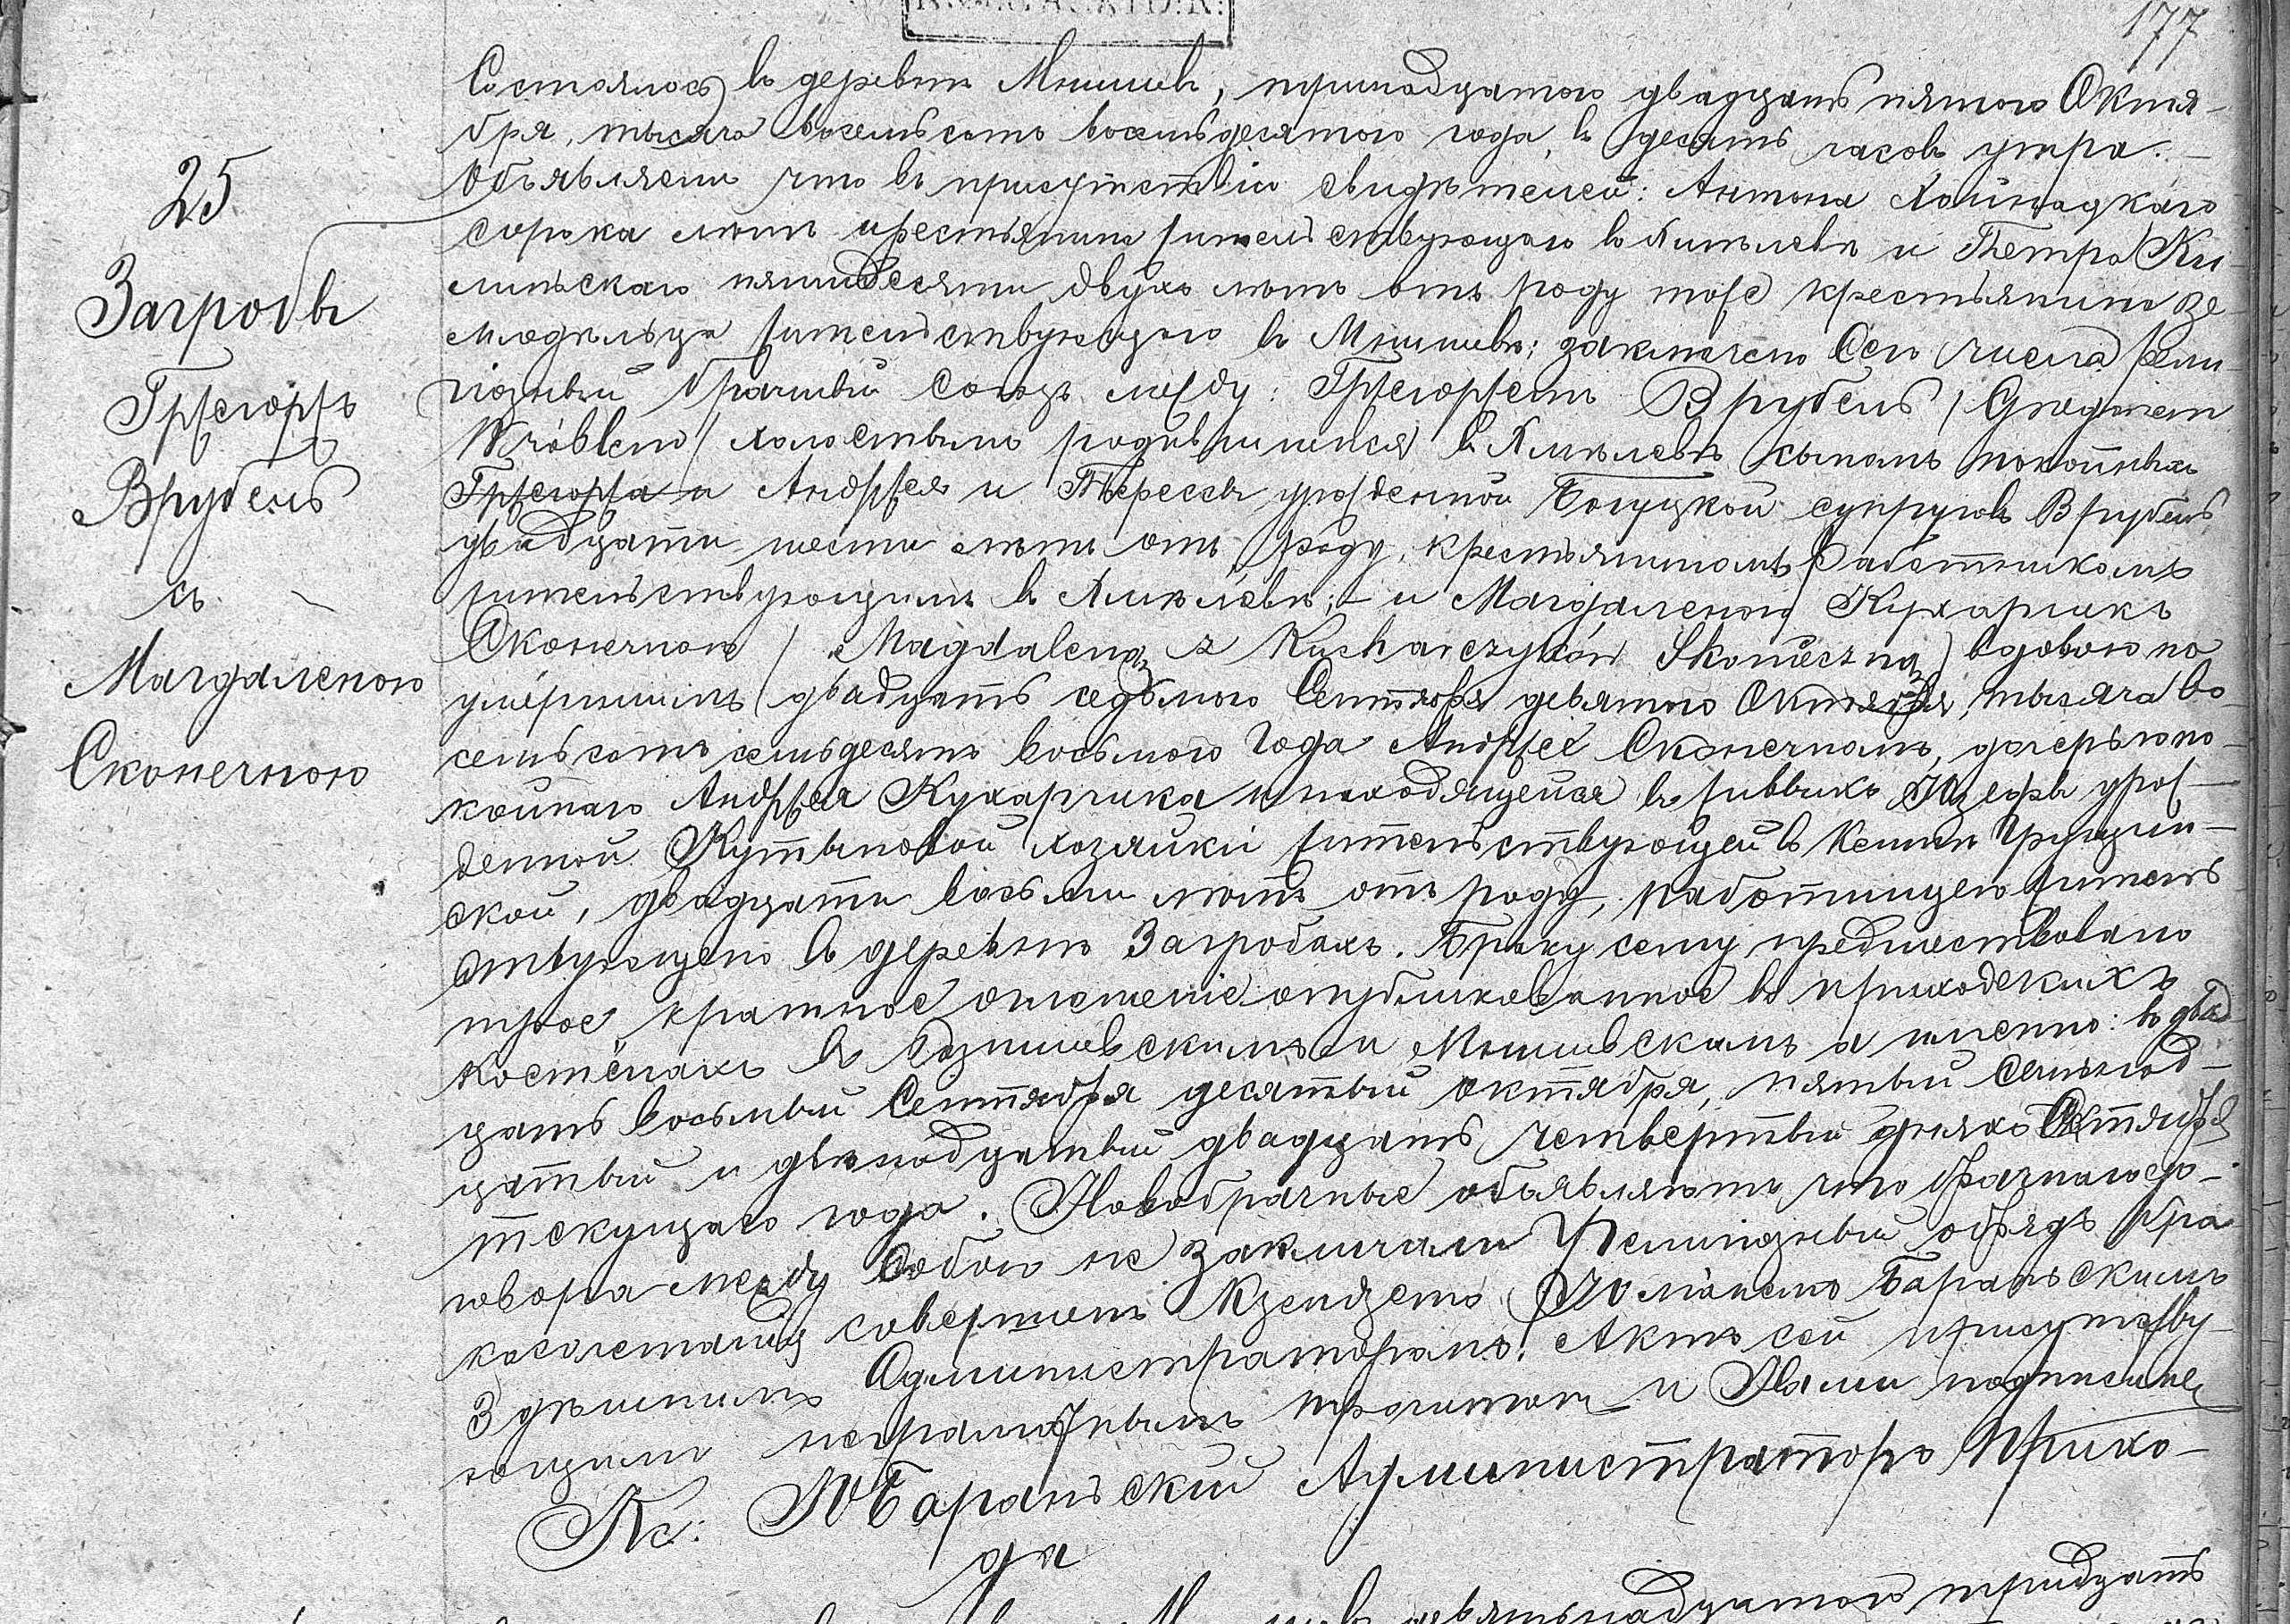 177
Состоялось въ деревнѣ Мнишевъ, тринадцатого двадцать пятого Октя-
бря, тысяча восемьсотъ восемьдесятого года, въ десять часовъ утра. —
Объявляемъ что въ присутствіи свидѣтелей: Антона Хойнацкаго
сорока лѣтъ крестьянина жительствующаго въ и Петра Ки-
лиńскаго пятидесяти двухъ лѣтъ отъ роду тоже крестьянина зе-
мледѣльца жительствующаго въ Мнишевѣ; заключено Сего числа рели-
гіозный брачный союзъ между: Гржегоржемъ Врубель / Grzegorzem
Wróblem / холостымъ родившимся въ сыномъ покойныхъ
Гржегоржа и Анджея и Терессы урожденной Богуцкой супруговъ Врубель
двадцати шести лѣтъ отъ роду, крестьяниномъ работникомъ
жительствующимъ въ ;– и Магдаленою Кухарчикъ
Сконечною / Magdaleną z Kucharczyków Skonieczną / вдовою по
умершимъ двадцать седьмого Сентября девятого Октября, тысяча во-
семьсотъ семьдесятъ восьмого года Анджеѣ Сконечномъ, дочерью по-
койнаго Анджея Кухарчика и находящейся въ живыхъ Юзефы урож-
денной Кутыновой хозяйки жительствующей въ Кемпѣ Грушин-
ской, двадцати восьми лѣтъ отъ роду, работницею житель-
ствующею въ деревнѣ Загробахъ. Браку сему предшествовало
трое кратное оглошеніе опубликованное въ приходскихъ
костёлахъ въ и Мнишевскимъ а именно: въ двад-
цать восьмый Сентября десятый октября, пятый Семнад-
цатый и двѣнадцатый двадцать четвертый дняхъ Октября
текущаго года. Новобрачные объявляютъ что брачнаго до-
говора между собою не заключали Религіозный обрядъ бра-
косочетанія совершонъ Ксендземъ Юліаномъ Бараньскимъ
Здѣшнимъ Администраторомъ. Актъ сей присутству-
ющимъ неграмотнымъ прочитанъ и Нами подписанъ
Кс: Ю Бараньскій Администраторъ Прихо-
да
25
Загробы
Гржегоржъ
Врубель
съ —
Магдаленою
Сконечною
девятнадцатого тридцать